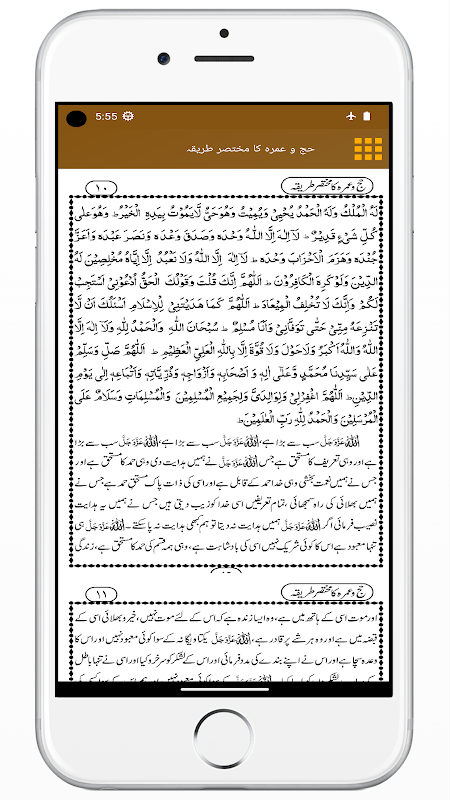 5:55
حج و عمرہ کا مختصر طریقہ
حج و عمرہ کا مختصر طریقہ
۱۰
لَهُ الْمُلْكُ وَلَهُ الْحَمْدُ يُحْيِىْ وَيُمِيْتُ وَهُوَحَىٌّ لَّايَمُوْتُ بِيَدِهِ الْخَيْرُ ط وَهُوَعَلٰى
كُلِّ شَىْءٍ قَدِيْرٌ ط لَآ اِلٰهَ اِلَّا اللّٰهُ وَحْدَه وَصَدَقَ وَعْدَه وَنَصَرَ عَبْدَه وَاَعَزَّ
جُنْدَه وَهَزَمَ الْاَحْزَابَ وَحْدَه ط لَآ اِلٰهَ اِلَّا اللّٰهُ وَلَا نَعْبُدُ اِلَّا اِيَّاهُ مُخْلِصِيْنَ لَهُ
الدِّيْنَ وَلَوْ كَرِهَ الْكَافِرُوْنَ ط اَللّٰهُمَّ اِنَّكَ قُلْتَ وَقَوْلُكَ الْحَقُّ اُدْعُوْنِىْ اَسْتَجِبْ
لَكُمْ وَاِنَّكَ لَا تُخْلِفُ الْمِيْعَادَ ط اَللّٰهُمَّ كَمَا هَدَيْتَنِىْ لِلْاِسْلَامِ اَسْئَلُكَ اَنْ لَّا
تَنْزِعَهُ مِنِّىْ حَتّٰى تَوَفَّانِىْ وَاَنَا مُسْلِمٌ ط سُبْحَانَ اللّٰهِ وَالْحَمْدُ لِلّٰهِ وَلَآ اِلٰهَ اِلَّا
اللّٰهُ وَاللّٰهُ اَكْبَرُ وَلَاحَوْلَ وَلَا قُوَّةَ اِلَّا بِاللّٰهِ الْعَلِىِّ الْعَظِيْمِ ط اَللّٰهُمَّ صَلِّ وَسَلِّمْ
عَلٰى سَيِّدِنَا مُحَمَّدٍ وَّعَلٰى اٰلِهٖ وَ اَصْحَابِهٖ وَاَزْوَاجِهٖ وَذُرِّيَّاتِهٖ وَاَتْبَاعِهٖ اِلٰى يَوْمِ
الدِّيْنِ ط اَللّٰهُمَّ اغْفِرْلِىْ وَلِوَالِدَىَّ وَلِجَمِيْعِ الْمُسْلِمِيْنَ وَالْمُسْلِمَاتِ وَسَلَامٌ عَلَى
الْمُرْسَلِيْنَ وَالْحَمْدُ لِلّٰهِ رَبِّ الْعٰلَمِيْنَ ط
اللہ عَزَّوَجَلَّ سب سے بڑا ہے، اللہ عَزَّوَجَلَّ سب سے بڑا ہے، اللہ عَزَّوَجَلَّ سب سے بڑا
ہے اور وہی تعریف کا مستحق ہے جس نے ہمیں ہدایت دی وہی حمد کا مستحق ہے اور
جس نے ہمیں نعمت بخشی وہی خدا حمد کے قابل ہے اور اسی کی ذات پاک مستحق حمد ہے جس نے
ہمیں بھلائی کی راہ سمجھائی، تمام تعریفیں اسی خدا کو زیب دیتی ہیں جس نے ہمیں یہ ہدایت
نصیب فرمائی اگر اللہ عَزَّوَجَلَّ ہمیں ہدایت نہ دیتا تو ہم کبھی ہدایت نہ پا سکتے۔ اللہ عَزَّوَجَلَّ ہی
تنہا معبود ہے اس کا کوئی شریک نہیں اسی کی بادشاہت ہے، وہی ہمہ قسم کی حمد کا مستحق ہے، زندگی
حج و عمرہ کا مختصر طریقہ
۱۱
اور موت اسی کے ہاتھ میں ہے، وہ ایسا زندہ ہے کہ اس کے لئے موت نہیں، خیر و بھلائی اسی کے
قبضہ میں ہے اور وہ ہر شے پر قادر ہے، اللہ عَزَّوَجَلَّ یکتا و یگانہ کے سوا کوئی معبود نہیں اور اس کا
وعدہ سچا ہے اور اس نے اپنے بندے کی مدد فرمائی اور اس کے لشکر کو سرخرو کیا اور اسی نے تنہا باطل